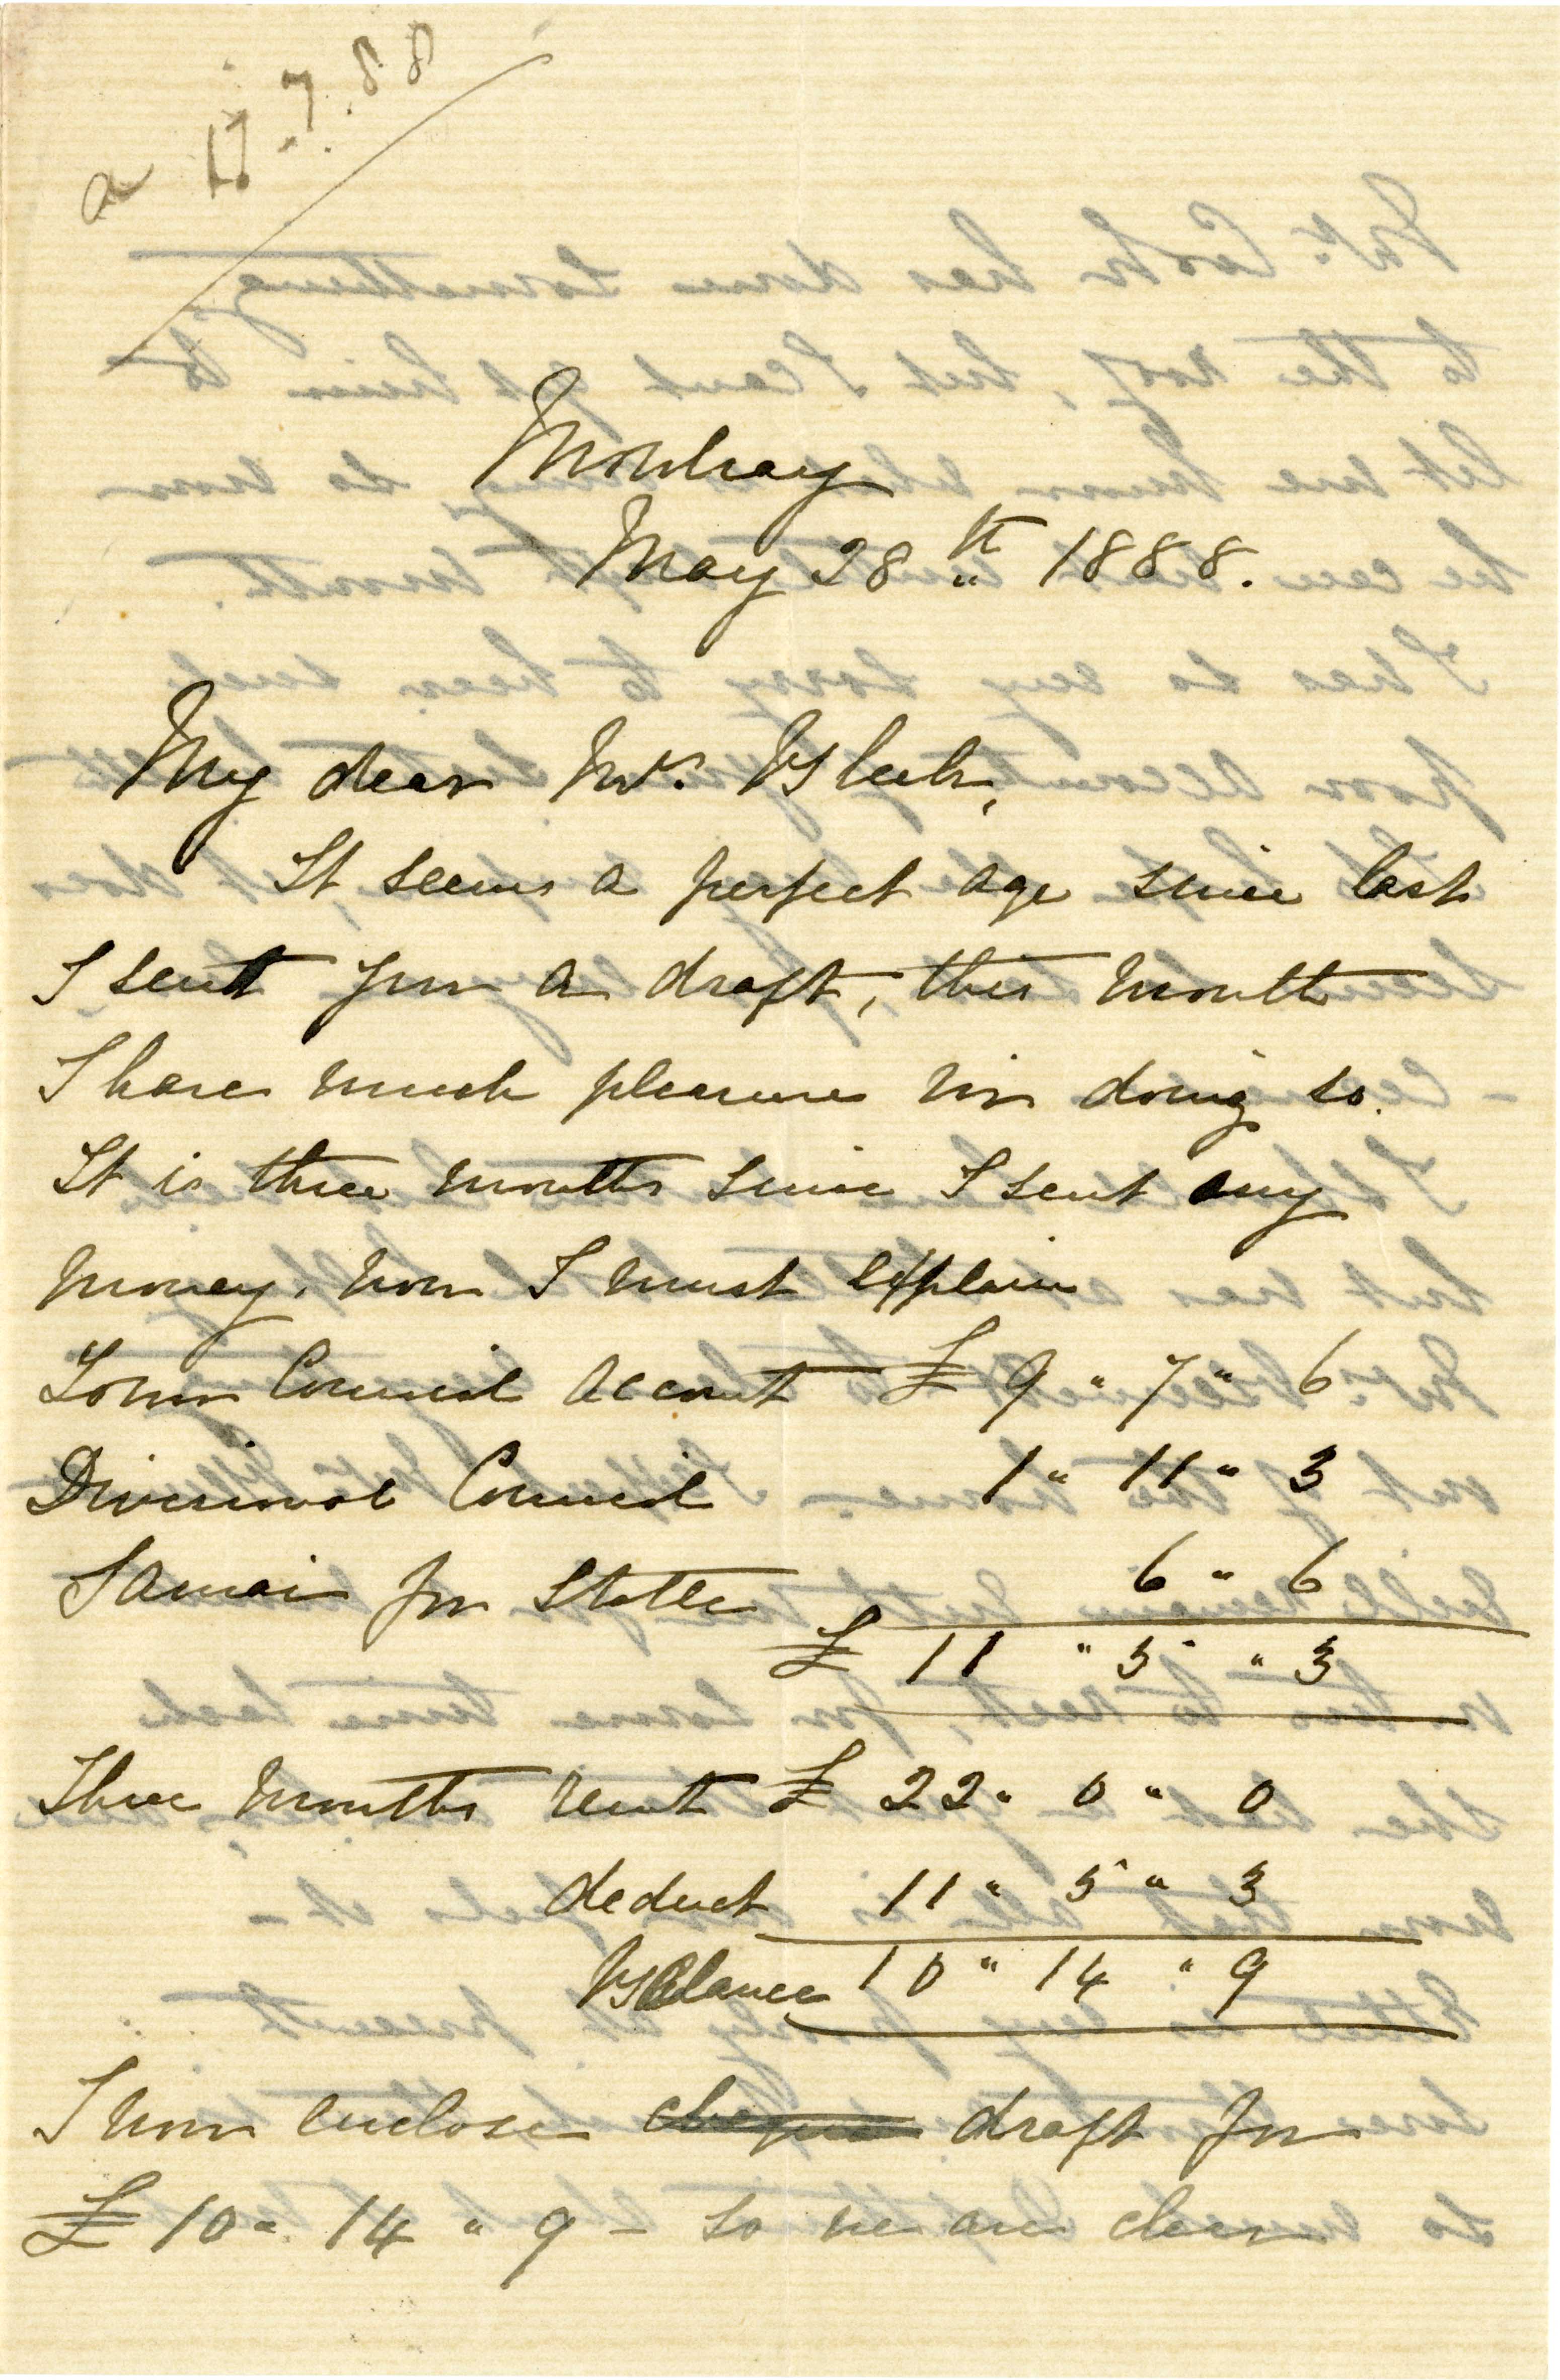 a 17.7.88
Mowbray
May 28th 1888.
My dear Mrs. Bleek,
It seems a perfect age since last
I sent you a draft, this month
I have much pleasure in doing so.
It is three months since I sent any
money. now I must explain
Town Council account £ 9 " 7 " 6
Divisional Council 1 " 11 " 3
for Stable 6 " 6
£ 11 " 5 " 3
Three months rent £ 22 " 0 " 0
deduct 11 " 5 " 3
Balance 10 " 14 " 9
I now enclose cheque draft for
£ 10 " 14 " 9 – so we are clear